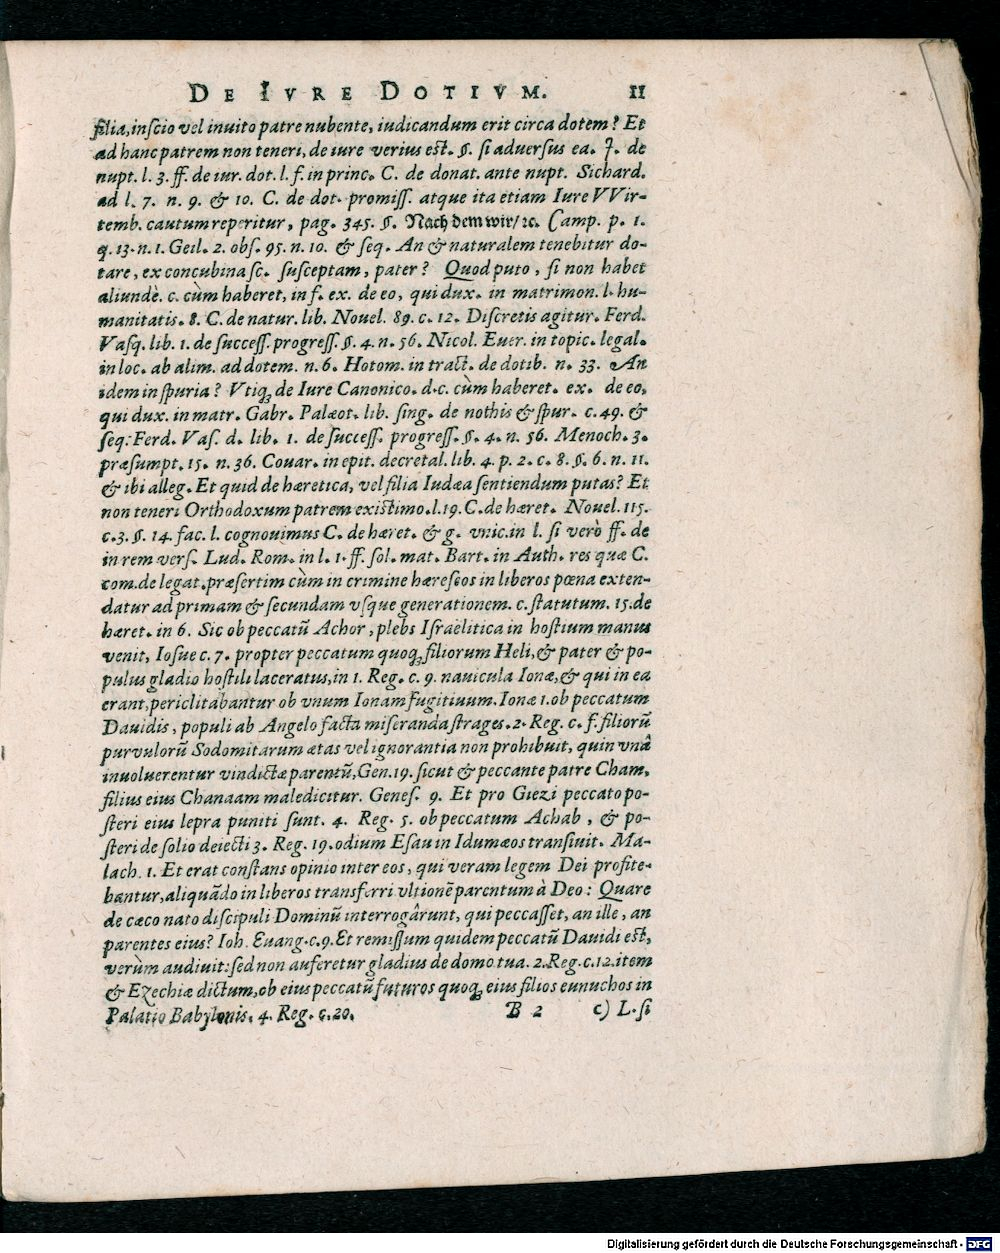 DE IVRE DOTIVM. 11
filiæ, inscio vel inuito patre nubente, iudicandum erit circa dotem? Et
ad hanc patrem non teneri, de iure verius est. §. si aduersus ea. J. de
nupt. l. 3. ff. de iur. dot. l. f. in princ. C. de donat. ante nupt. Sichard.
ad l. 7. n. 9. & 10. C. de dot. promiss. atque ita etiam Iure VVir-
temb. cautum reperitur, pag. 345. §. Nach dem wir/ꝛc. Camp. p. 1.
q. 13. n. 1. Geil. 2. obs. 95. n. 10. & seq. An & naturalem tenebitur do-
tare, ex concubina sc. susceptam, pater? Quod puto, si non habet
aliundè. c. cùm haberet, in f. ex. de eo, qui dux. in matrimon. l. hu-
manitatis. 8. C. de natur. lib. Nouel. 89. c. 12. Discretis agitur. Ferd.
Vasq. lib. 1. de success. progress. §. 4. n. 56. Nicol. Euer. in topic. legal.
in loc. ab alim. ad dotem. n. 6. Hotom. in tract. de dotib. n. 33. An
idem in spuria? Vtiq; de Iure Canonico. d. c. cùm haberet. ex. de eo,
qui dux. in matr. Gabr. Palæot. lib. sing. de nothis & spur. c. 49. &
seq: Ferd. Vas. d. lib. 1. de success. progress. §. 4. n. 56. Menoch. 3.
præsumpt. 15. n. 36. Couar. in epit. decretal. lib. 4. p. 2. c. 8. §. 6. n. 11.
& ibi alleg. Et quid de hæretica, vel filia Iudæa sentiendum putas? Et
non teneri Orthodoxum patrem existimo. l. 19. C. de hæret. Nouel. 115.
c. 3. §. 14. fac. l. cognouimus C. de hæret. & g. vnic. in l. si verò ff. de
in rem vers. Lud. Rom. in l. 1. ff. sol. mat. Bart. in Auth. res quæ C.
com. de legat. præsertim cùm in crimine hæreseos in liberos pœna exten-
datur ad primam & secundam vsque generationem. c. statutum. 15. de
hæret. in 6. Sic ob peccatũ Achor, plebs Israëlitica in hostium manus
venit, Iosue c. 7. propter peccatum quoq; filiorum Heli, & pater & po-
pulus gladio hostili laceratus, in 1. Reg. c. 9. nauicula Ionæ, & qui in ea
erant, periclitabantur ob vnum Ionam fugitiuum. Ionæ 1. ob peccatum
Dauidis, populi ab Angelo facta miseranda strages. 2. Reg. c. f. filiorũ
purvulorũ Sodomitarum ætas vel ignorantia non prohibuit, quin vnâ
inuoluerentur vindictæ parentũ, Gen. 19. sicut & peccante patre Cham,
filius eius Chanaam maledicitur. Genes. 9. Et pro Giezi peccato po-
steri eius lepra puniti sunt. 4. Reg. 5. ob peccatum Achab, & po-
steri de solio deiecti 3. Reg. 19. odium Esau in Idumæos transiuit. Ma-
lach. 1. Et erat constans opinio inter eos, qui veram legem Dei profite-
bantur, aliquãdo in liberos transferri vltionẽ parentum à Deo: Quare
de cæco nato discipuli Dominũ interrogârunt, qui peccasset, an ille, an
parentes eius? Ioh. Euang. c. 9. Et remissum quidem peccatũ Dauidi est,
verùm audiuit: sed non auferetur gladius de domo tua. 2. Reg. c. 12. item
& Ezechiæ dictum, ob eius peccatũ futuros quoq; eius filios eunuchos in
Palatio Babylonis. 4. Reg. c. 20.
B 2 c) L. si
Digitalisierung gefördert durch die Deutsche Forschungsgemeinschaft - DFG